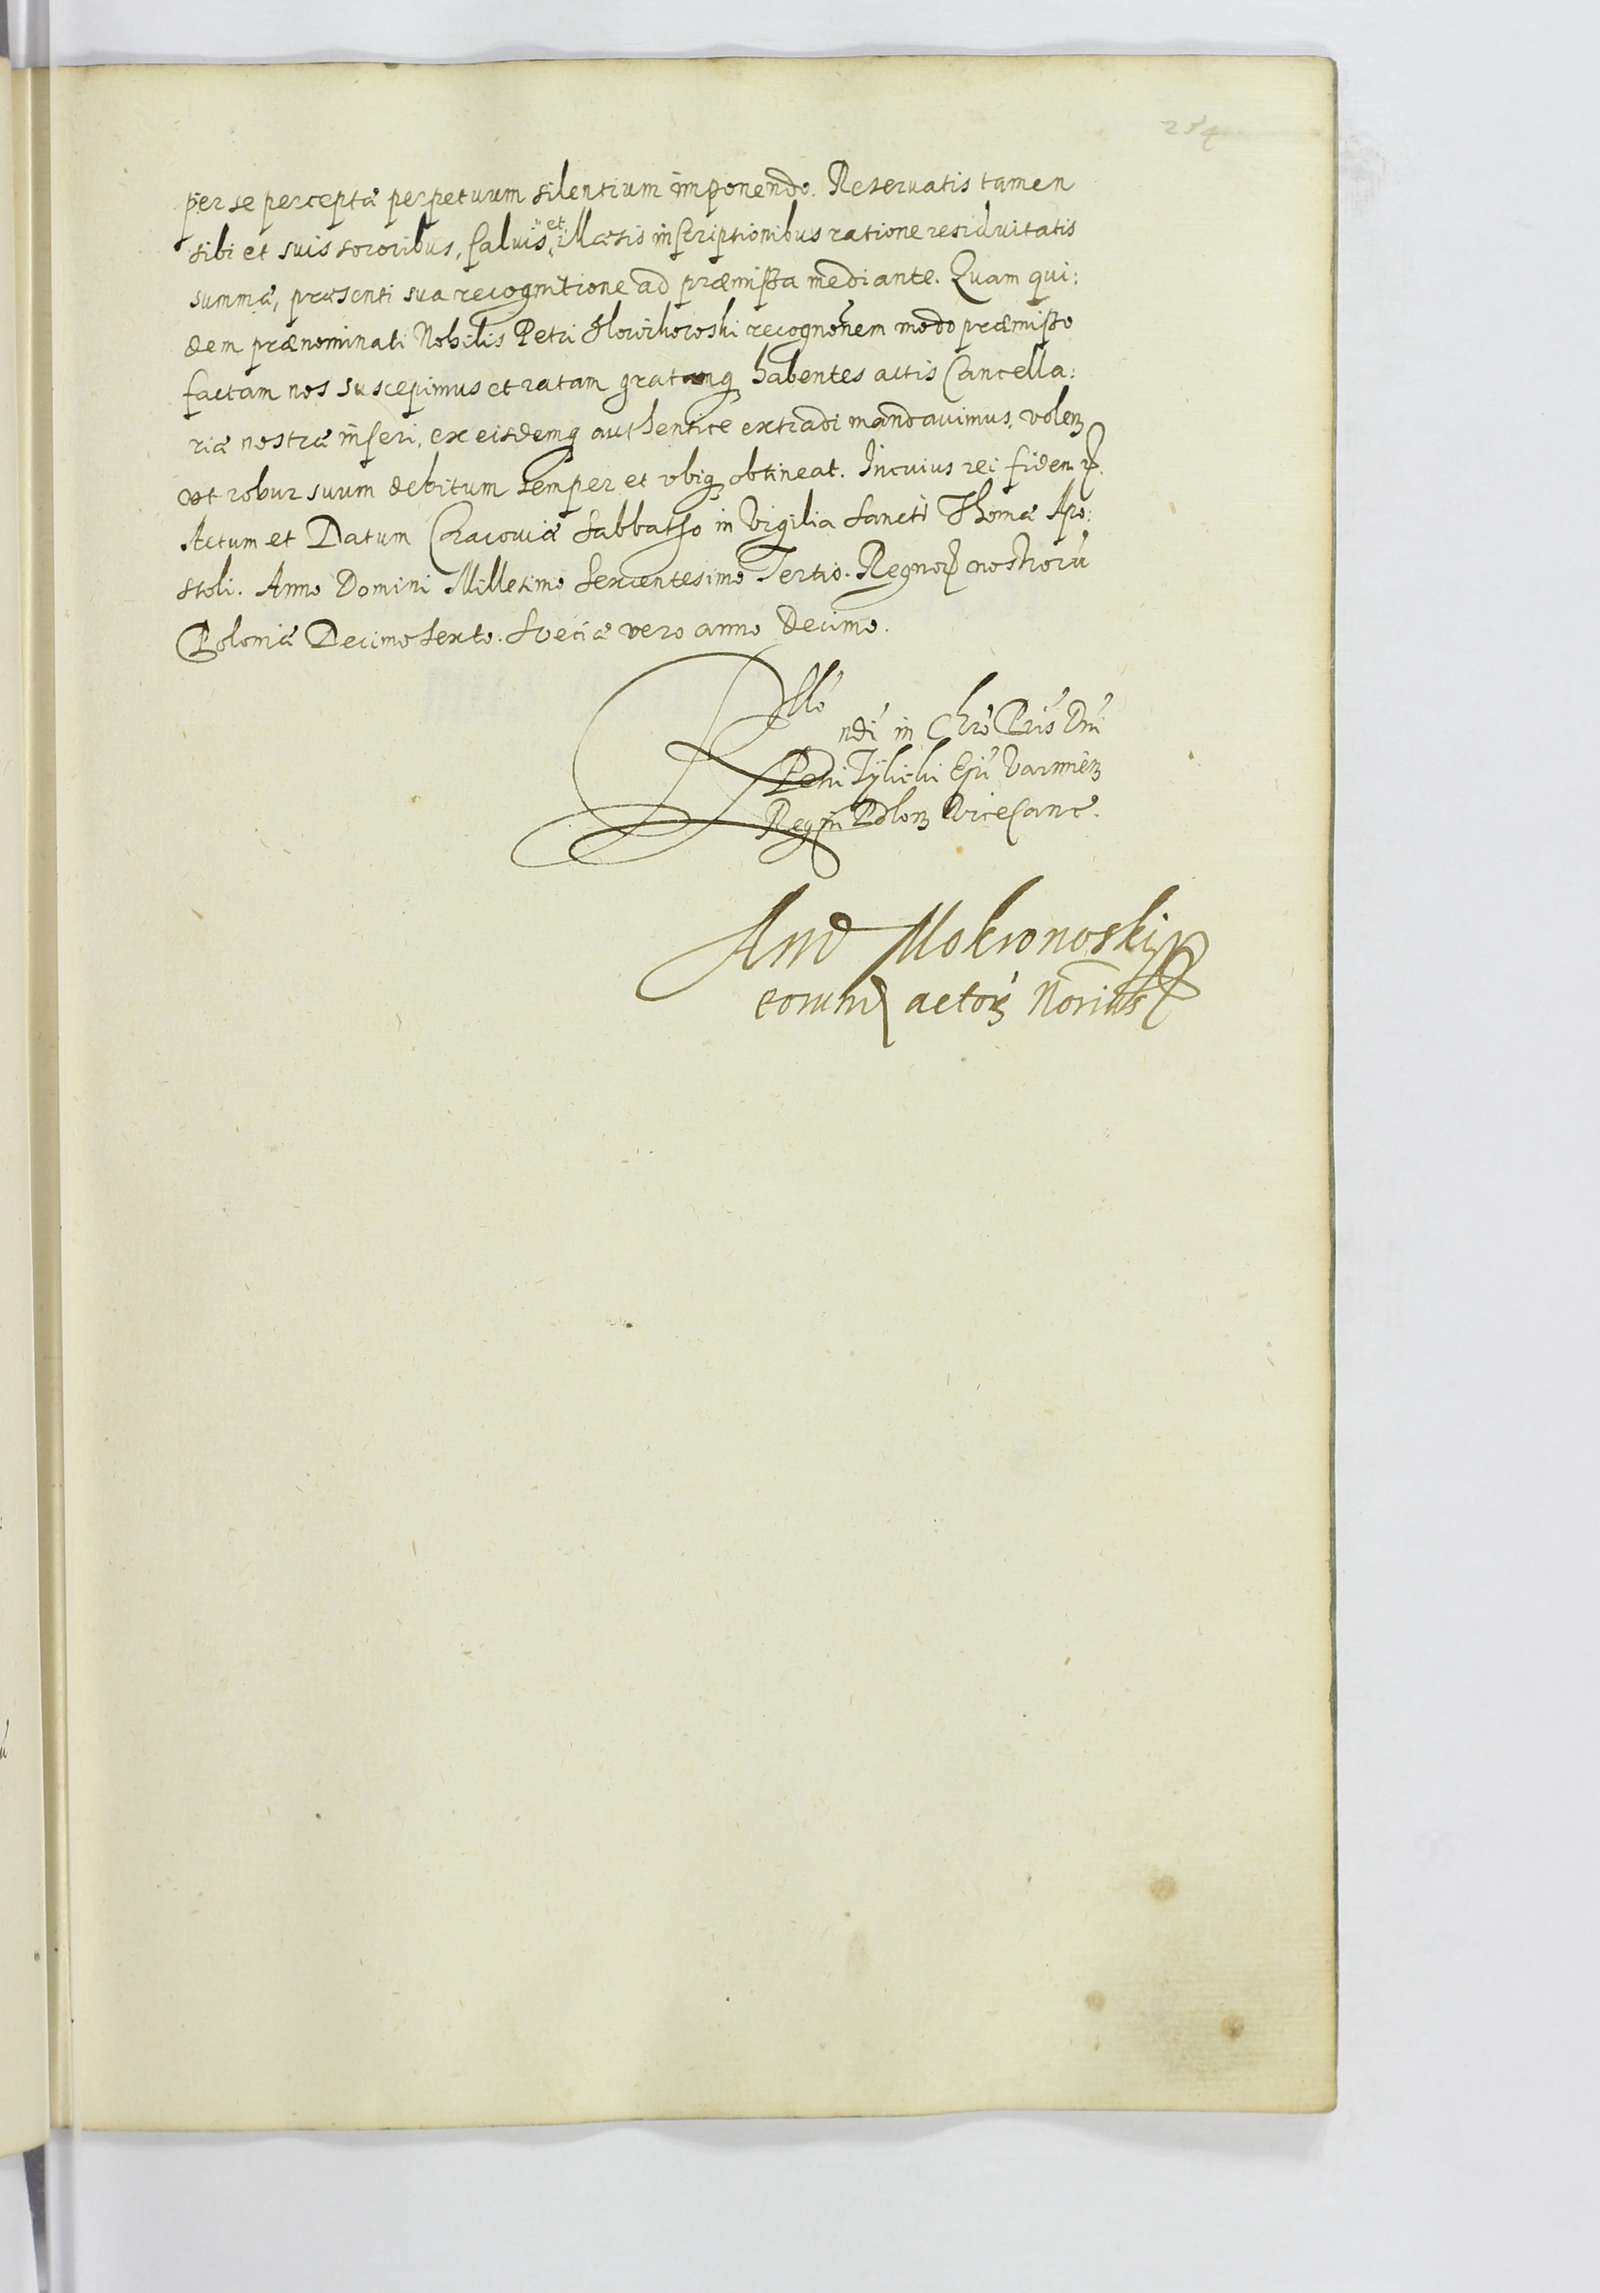 254
per se perceptæ perpetuum silentium imponendo. Reservatis tamen
sibi et suis sororibus, salvis et illæsis inscriptionibus ratione residuitatis
summæ, præsenti sua recognitione ad præmissa mediante. Quam qui:
dem prænominati Nobilis Petri recogno͞nem modo præmisso
factam nos suscepimus et ratam gratamq habentes actis Cancella:
riæ nostræ inseri, ex eisdemq authentice extradi mandavimus, volen
vt robur suum debitum semper et vbiq obtineat. In cuius rei fidem
Actum et Datum Cracoviæ Sabbatho in Vigilia Sancti Thomæ Apo:
stoli. Anno Domini Millesimo Sexcentesimo Tertio. Regnoꝝ nostrorū
Poloniæ Decimo Sexto. Sveciæ vero anno Decimo.
Rllo
ndi in Chro Pris Dni
Petri Tÿlicki Epi Varmien
Regni Polon Vicecanc.
And Mokronoski
eorund actorꝫ Norius